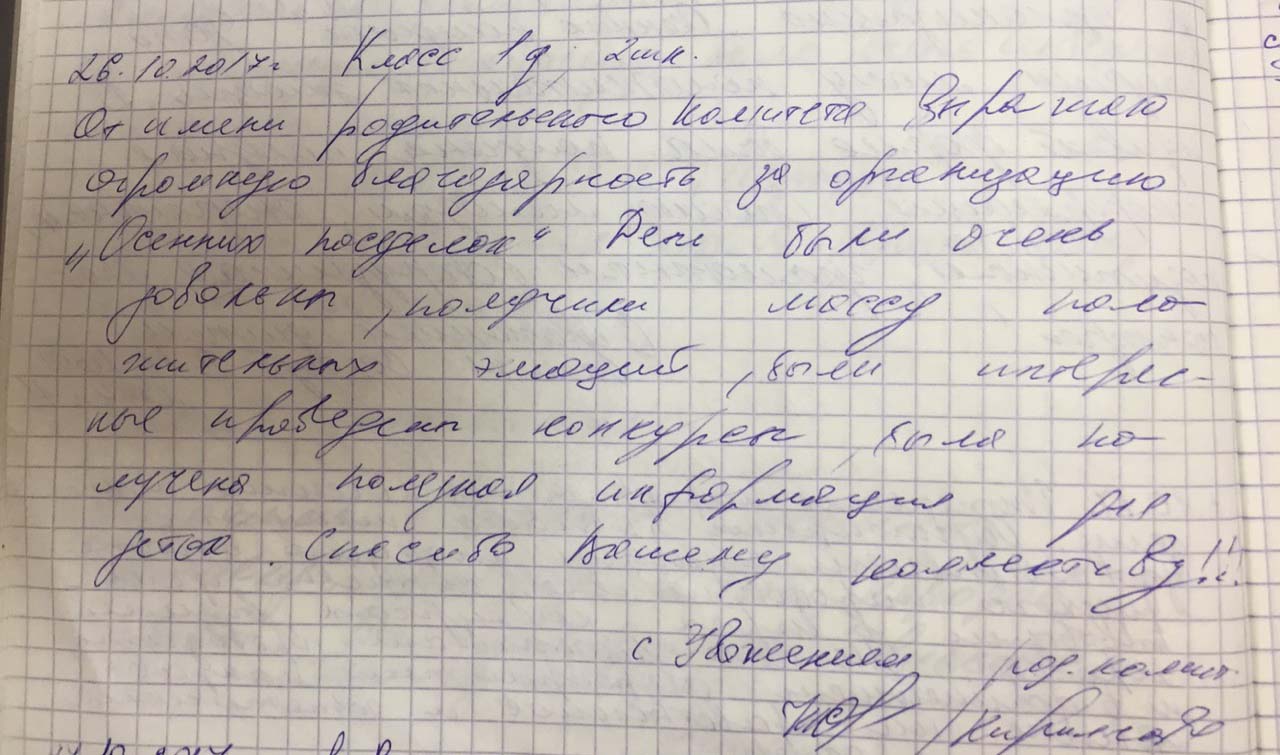 26.10.2017г Класс 1д, 2шк.
От имени родительского комитета Выражаю
огромную благодарность за организацию
„Осенних посиделок“ Дети были очень
довольны, получили массу поло-
жительных эмоций, были интерес-
ные проведены конкурсы, была по-
лучена полезная информация для
деток. Спасибо Вашему коллективу!!!
с Уважением, род. комит.